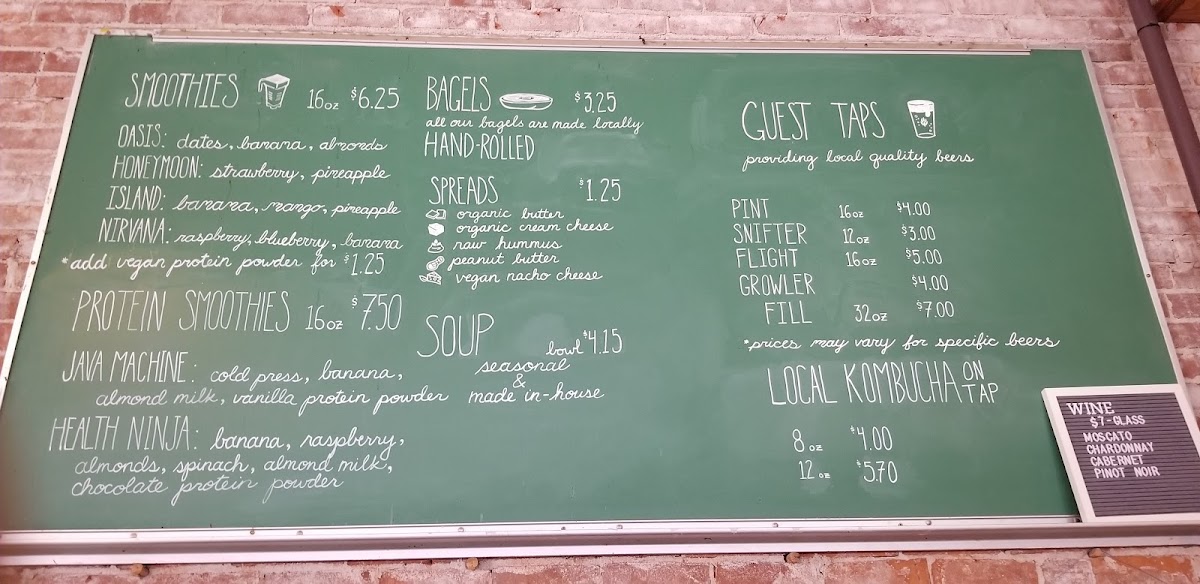 SMOOTHIES 16oz $6.25
OASIS: dates, banana, almonds
HONEYMOON: strawberry, pineapple
ISLAND: banana, mango, pineapple
NIRVANA: raspberry, blueberry, banana
*add vegan protein powder for $1.25
PROTEIN SMOOTHIES 16oz $7.50
JAVA MACHINE: cold press, banana,
almond milk, vanilla protein powder
HEALTH NINJA: banana, raspberry,
almonds, spinach, almond milk,
chocolate protein powder
BAGELS $3.25
all our bagels are made locally
HAND-ROLLED
SPREADS $1.25
organic butter
organic cream cheese
raw hummus
peanut butter
vegan nacho cheese
SOUP bowl $4.15
seasonal
&
made in-house
GUEST TAPS
providing local quality beers
PINT 16oz $4.00
SNIFTER 12oz $3.00
FLIGHT 16oz $5.00
GROWLER $4.00
FILL 32oz $7.00
*prices may vary for specific beers
LOCAL KOMBUCHA ON TAP
8oz $4.00
12oz $5.70
WINE
$7-GLASS
MOSCATO
CHARDONNAY
CABERNET
PINOT NOIR